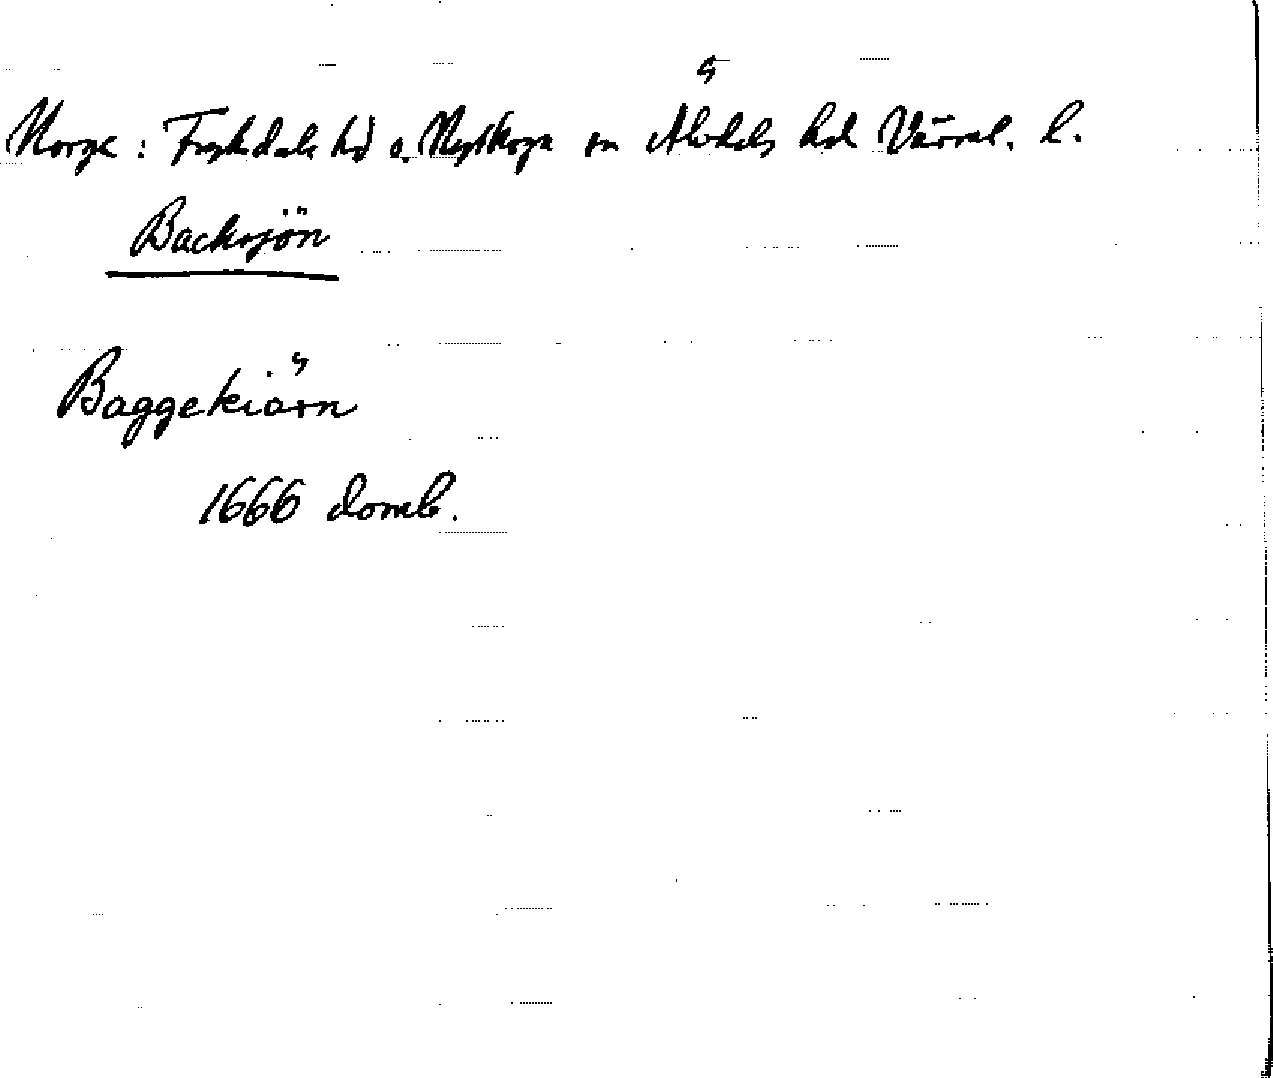 Norge: Fryksdals hd o. Nyskoga sn Älvdals hd Värml. l.
Backsjön
Baggekiärn
1666 domb.